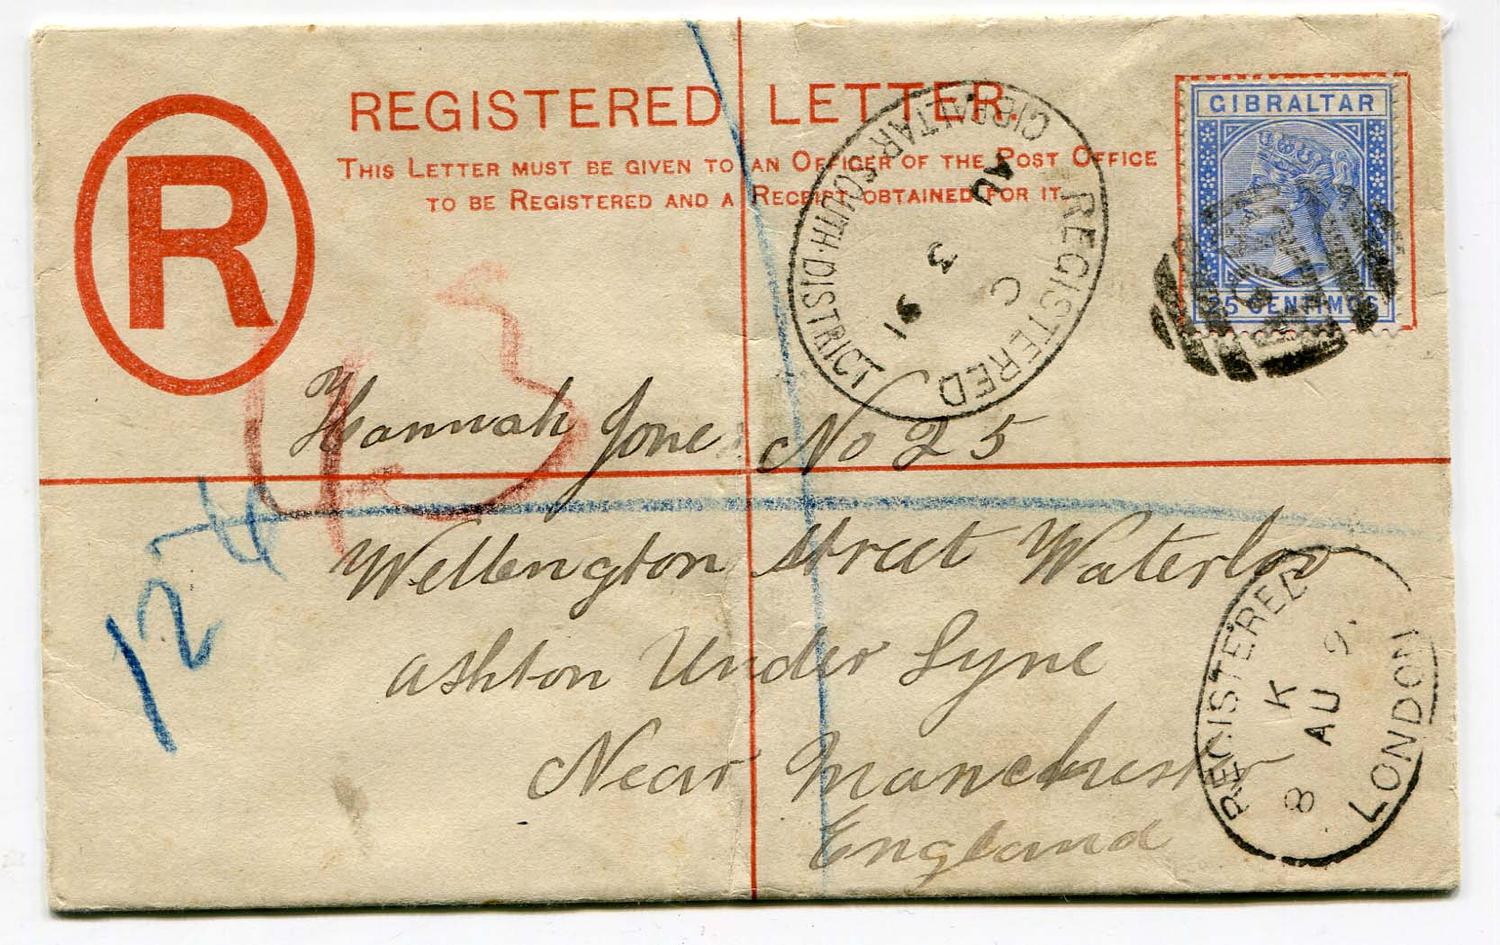 REGISTERED LETTER.
THIS LETTER MUST BE GIVEN TO AN OFFICER OF THE POST OFFICE
TO BE REGISTERED AND A RECEIPT OBTAINED FOR IT
R
GIBRALTAR
25 CENTIMOS
REGISTERED
GIBRALTAR·SOUTH·DISTRICT
C
AU 3 91
43
Hannah Jone No 25
Wellengton Street Waterloo
Ashton Under Lyne
Near Manchester
England
124
REGISTERED
LONDON
K
8 AU 9